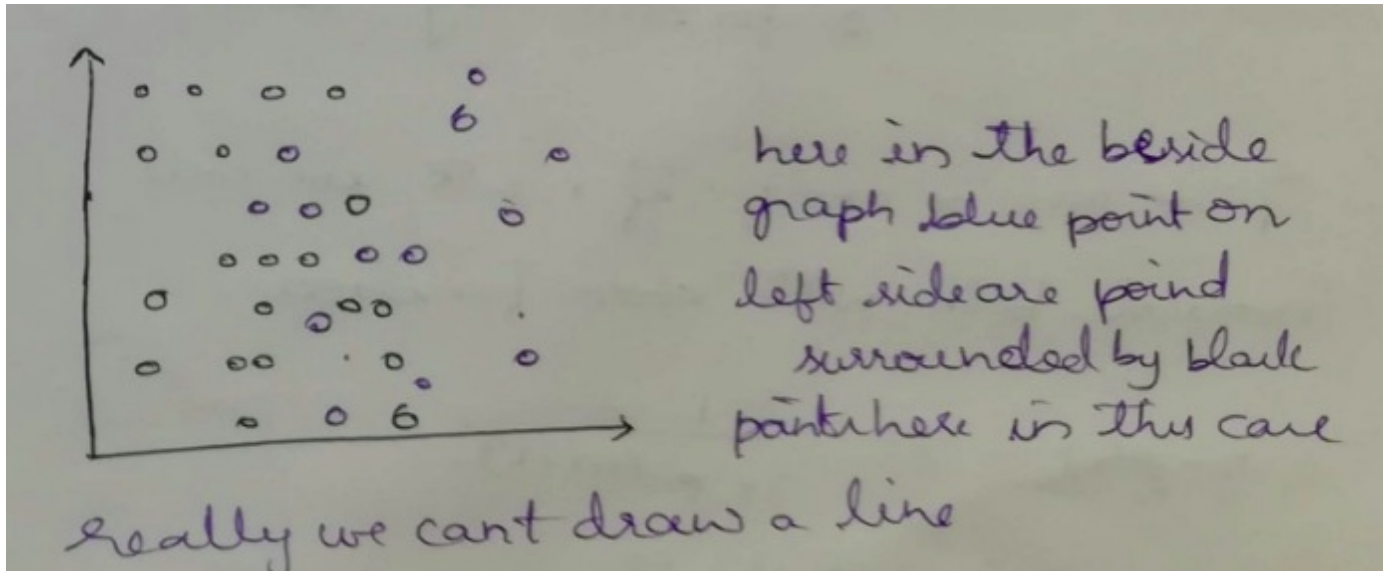 here in the beside
graph blue point on
left side are poind
surrounded by black
points here in this case
really we can't draw a line